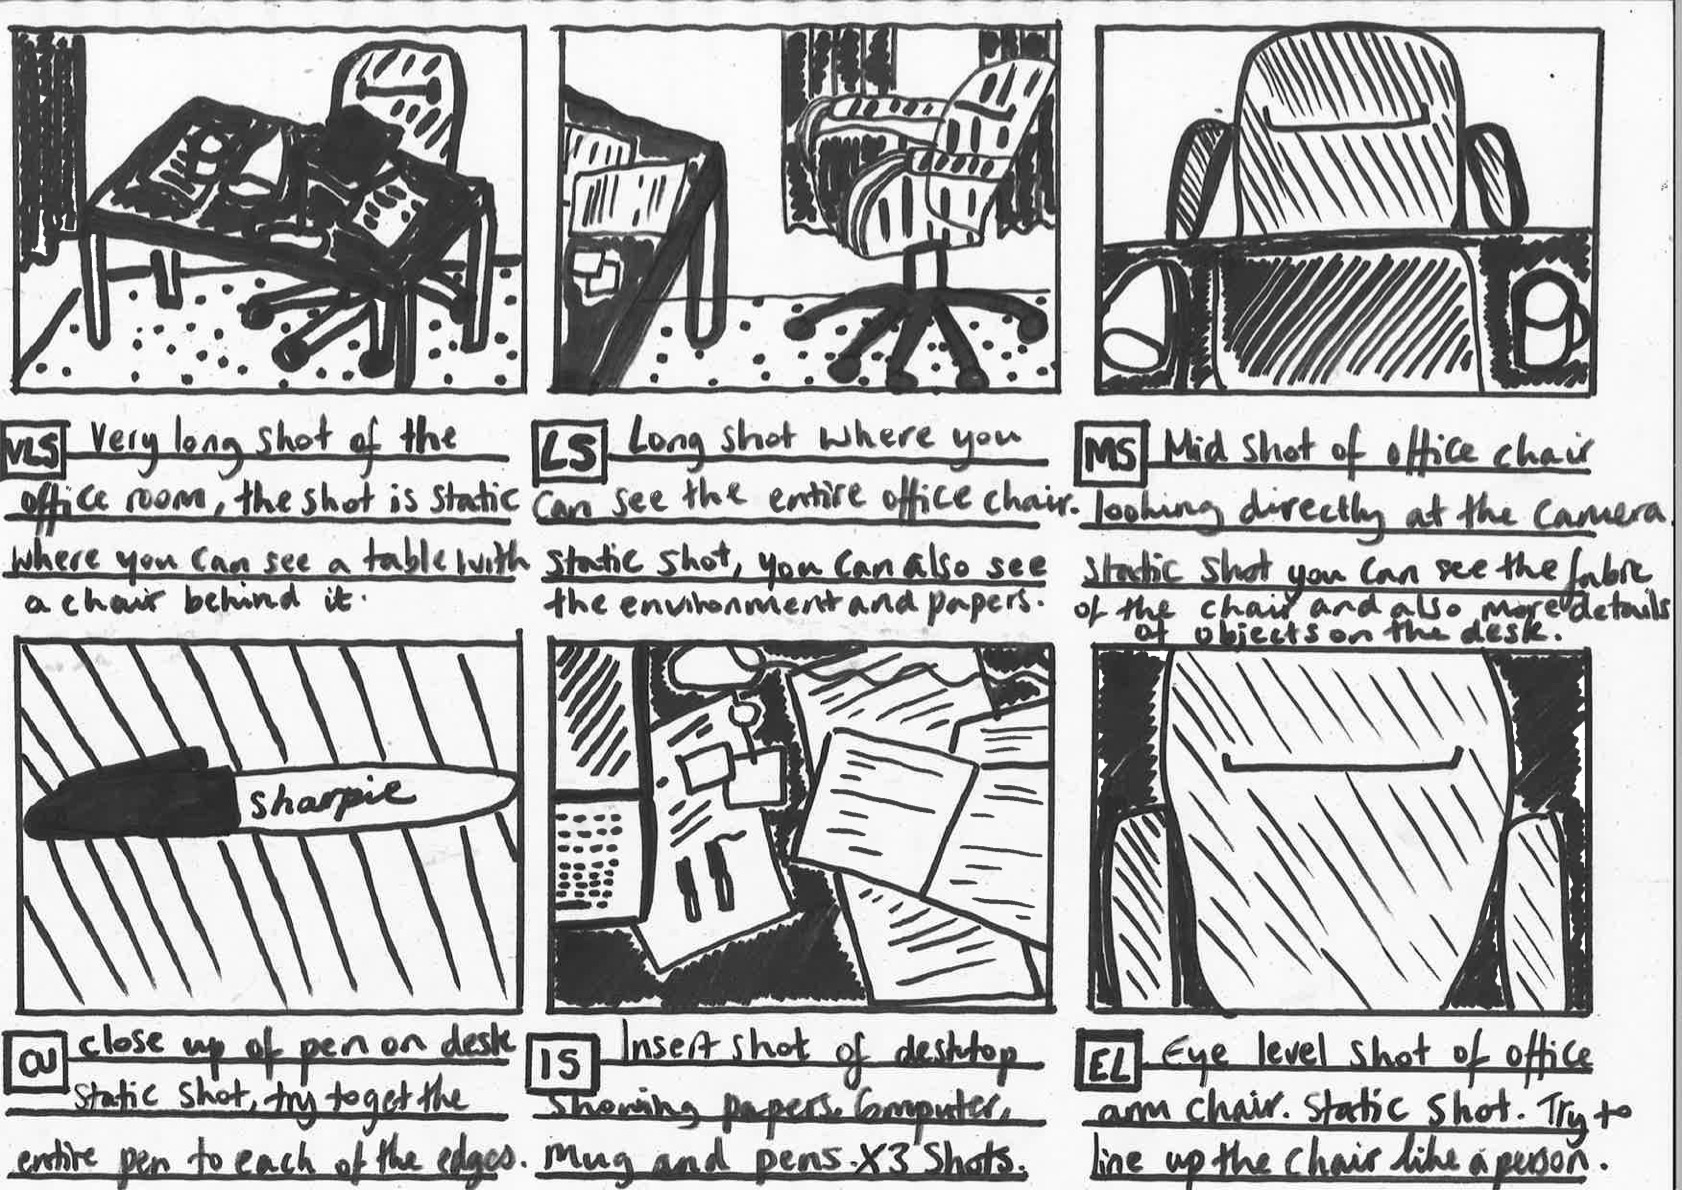 VLS Very long shot of the
office room, the shot is static
where you can see a table with
a chair behind it.
LS Long shot where you
can see the entire office chair.
static shot, you can also see
the environment and papers.
MS Mid shot of office chair
looking directly at the camera
static shot you can see the fabric
of the chair and also more details
of objects on the desk.
Sharpie
CU close up of pen on desk
static shot, try to get the
entire pen to each of the edges.
IS Insert shot of desktop
showing papers, Computer,
mug and pens. X3 Shots.
EL Eye level shot of office
arm chair. Static shot. Try to
line up the chair like a person.